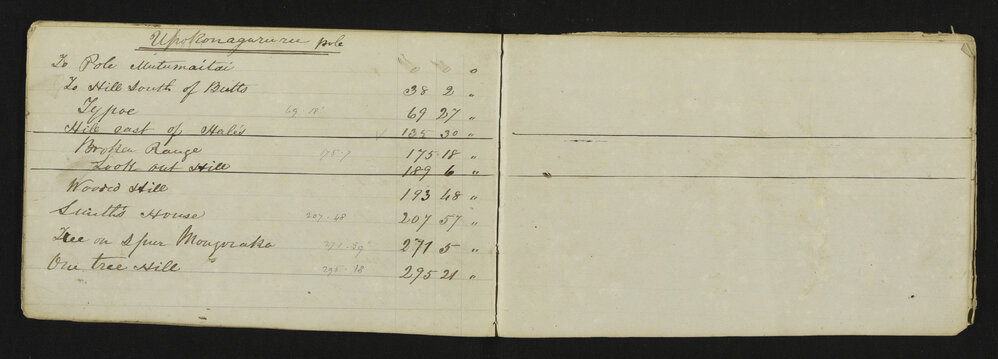 Upokonagaruru pole
To Pole Mutumaitai 0 00 "
To Hill South of Butts 38 2 "
Typoe 69 18' 69 27 "
Hill east of Hales 135 30 "
Broken Range 175.7 175 18 "
Look out Hill 189 6 "
Wooded Hill 193 48 "
Smith's House 207.48 207 57 "
Tree on Spur Mongoraka 271 5 "
One tree Hill 295.18 295 21 "